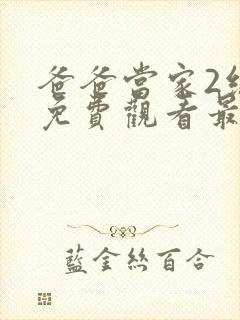 爸爸當家2
免費觀看最
藍金絲百合